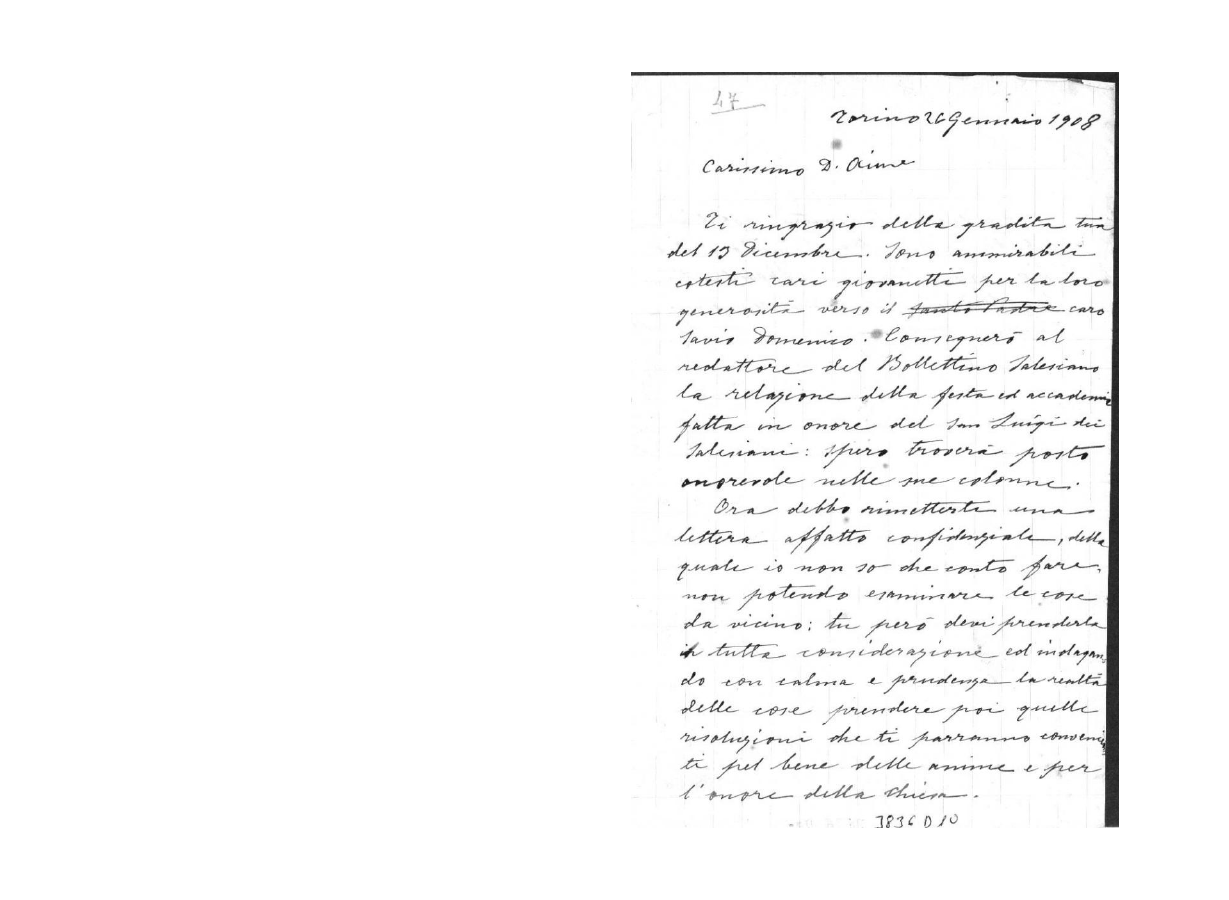 47
Torino 26 Gennaio 1908
Carissimo D. Aime
Ti ringrazio della gradita tua
del 13 Dicembre. Sono ammirabili
cotesti cari giovanetti per la loro
generosità verso il Santo Padre caro
Savio Domenico. Consegnerò al
redattore del Bollettino Salesiano
la relazione della festa ed accademia
fatta in onore del San Luigi dei
Salesiani: spero troverà posto
onorevole nelle sue colonne.
Ora debbo rimetterti una
lettera affatto confidenziale, della
quale io non so che conto fare,
non potendo esaminare le cose
da vicino; tu però devi prenderla
in tutta considerazione ed indagan
do con calma e prudenza la realtà
delle cose prendere poi quelle
risoluzioni che ti parranno convenien
ti pel bene delle anime e per
l'onore della Chiesa.
3836 D 10